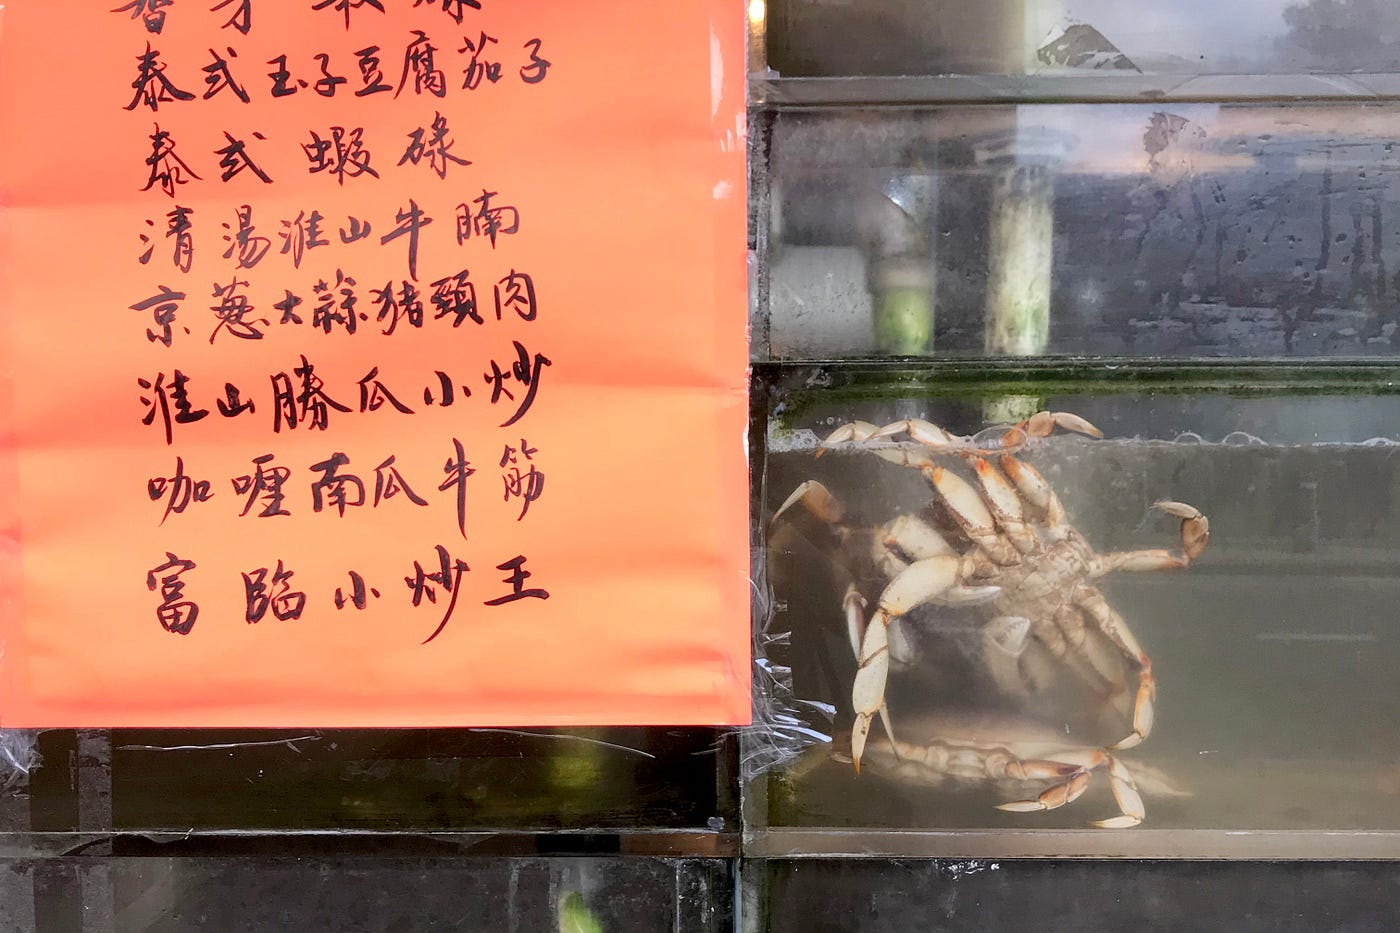 泰式玉子豆腐茄子
泰式蝦碌
清湯淮山牛腩
京葱大蒜猪頸肉
淮山勝瓜小炒
咖喱南瓜牛筋
富臨小炒王